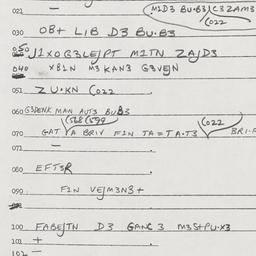 021 —
M1D3 BU·B3/C3ZAM3
C022
030 OB+ LIB D3 BU·B3
050 J1XOG3LE/PT M1TN ZAJD3
040 XB1N M3 KAN3 G3VEJN
051 ZU·KN C022
060 G3DENK MAN AUT3 BUB3
(568 (599
C022
070 GAT A BRIV F1N TA=TA·T3 BRI·F
071 —
080 EFT3R
090 F1N VEJM3N3+
100 FABEJTN D3 GANC3 M3S+PU·X3
101 +
102 —